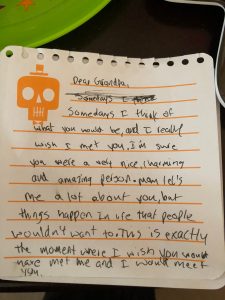 Dear Grandpa,
Somedays I
Somedays I think of
what you would be, and I really
wish I met you, I'm sure
you were a very nice, charming
and amazing person. mom tel's
me a lot about you, but
things happen in life that people
wouldn't want to. This is exactly
the moment where I wish you would
have met me and I would meet
you.